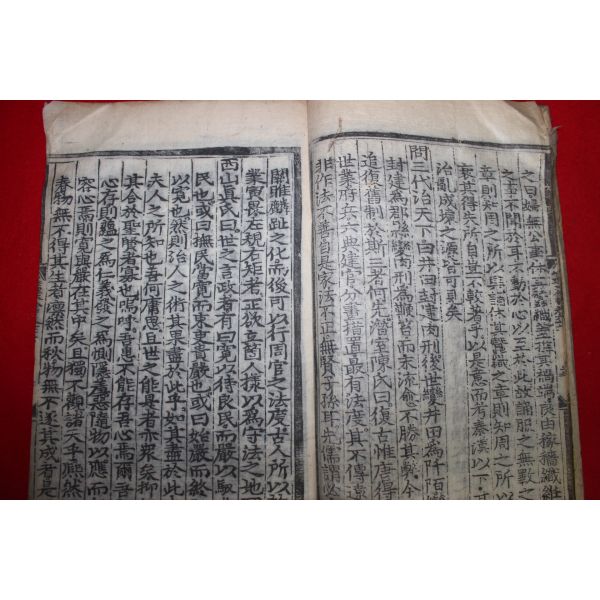 之章不聞於耳不動於心以至於此故誦服之無斁之
章則知周之所以興誦休其蠶織之章則知周之所以
衰其得失所自豈不較著乎以是意而考秦漢以下
治亂成壞之源皆可見矣
問三代治天下曰井田封建肉刑後世變井田為阡陌變
封建為郡縣變肉刑為鞭笞而末流愈不勝其弊今
追復舊制於斯三者何先潛室陳氏曰復古惟唐得
世業府兵六典建官分畫措置最有法度其不傳遠
非作法不善自是家法不正無賢子孫耳先儒謂必
關雎麟趾之化而後可以行周官之法度古人所以
業寅畏左規右矩者正欲立箇人樣以為守法之地
西山真氏曰世之言政者有曰寬以待民民而嚴以馭
民也或曰撫民當寬而束吏貴嚴也或曰始嚴而終
以寬也然則治人之術其果盡於此乎如其盡於此
夫人之所知也吾何庸思且世之能是者亦衆矣抑
其合於聖賢者寡也嗚呼吾患不能存吾心焉爾吾
心存則蘊之為仁義發之為惻隱羞惡隨物以應而
容心焉則寬與嚴在其中矣且獨不觀諸天乎熙然
春物無不得其生者凜然而秋物無不遂其成者是